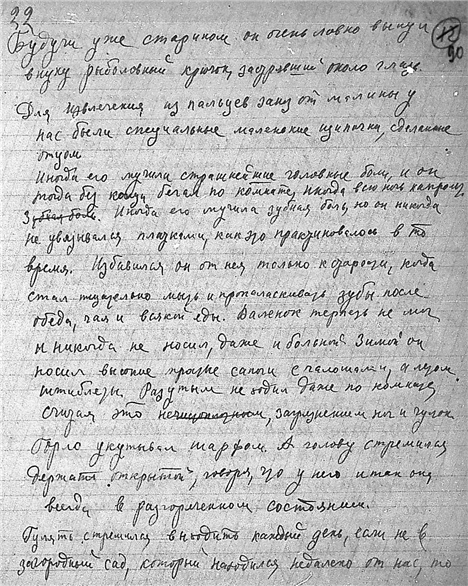 22
Будучи уже стариком он очень ловко вынул
12
90
внуку рыболовный крючок, застрявший около глаза
Для извлечения из пальцев заноз от малины у
нас были специальные маленькие щипчики, сделанные
отцом
Иногда его мучили страшнейшие головные боли, и он
тогда без конца бегал по комнате, иногда всю ночь напролет
Зубная боль. Иногда его мучила зубная боль, но он никогда
не увязывался платками, как это практиковалось в то
время. Избавился он от нея только к старости, когда
стал тщательно мыть и прополаскивать зубы после
обеда, чая и всякой еды. Валенок терпеть не мог
и никогда не носил, даже и больной. Зимой он
носил высокие сапоги с галошами, а летом
штиблеты. Разутым не ходил даже по комнате,
считая это загрязнением ног и чулок
Горло укутывал шарфом. А голову стремился
держать открытой, говоря, что у него и так она
всегда в разгоряченном состоянии.
Гулять стремился выходить каждый день, если не в
загородный сад, который находился недалеко от нас, то